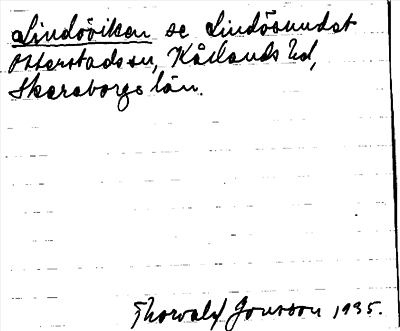 Lindöviken se Lindösundet
Otterstads sn, Kållands hd,
Skaraborgs län.
Thorvald Jonsson 1935.